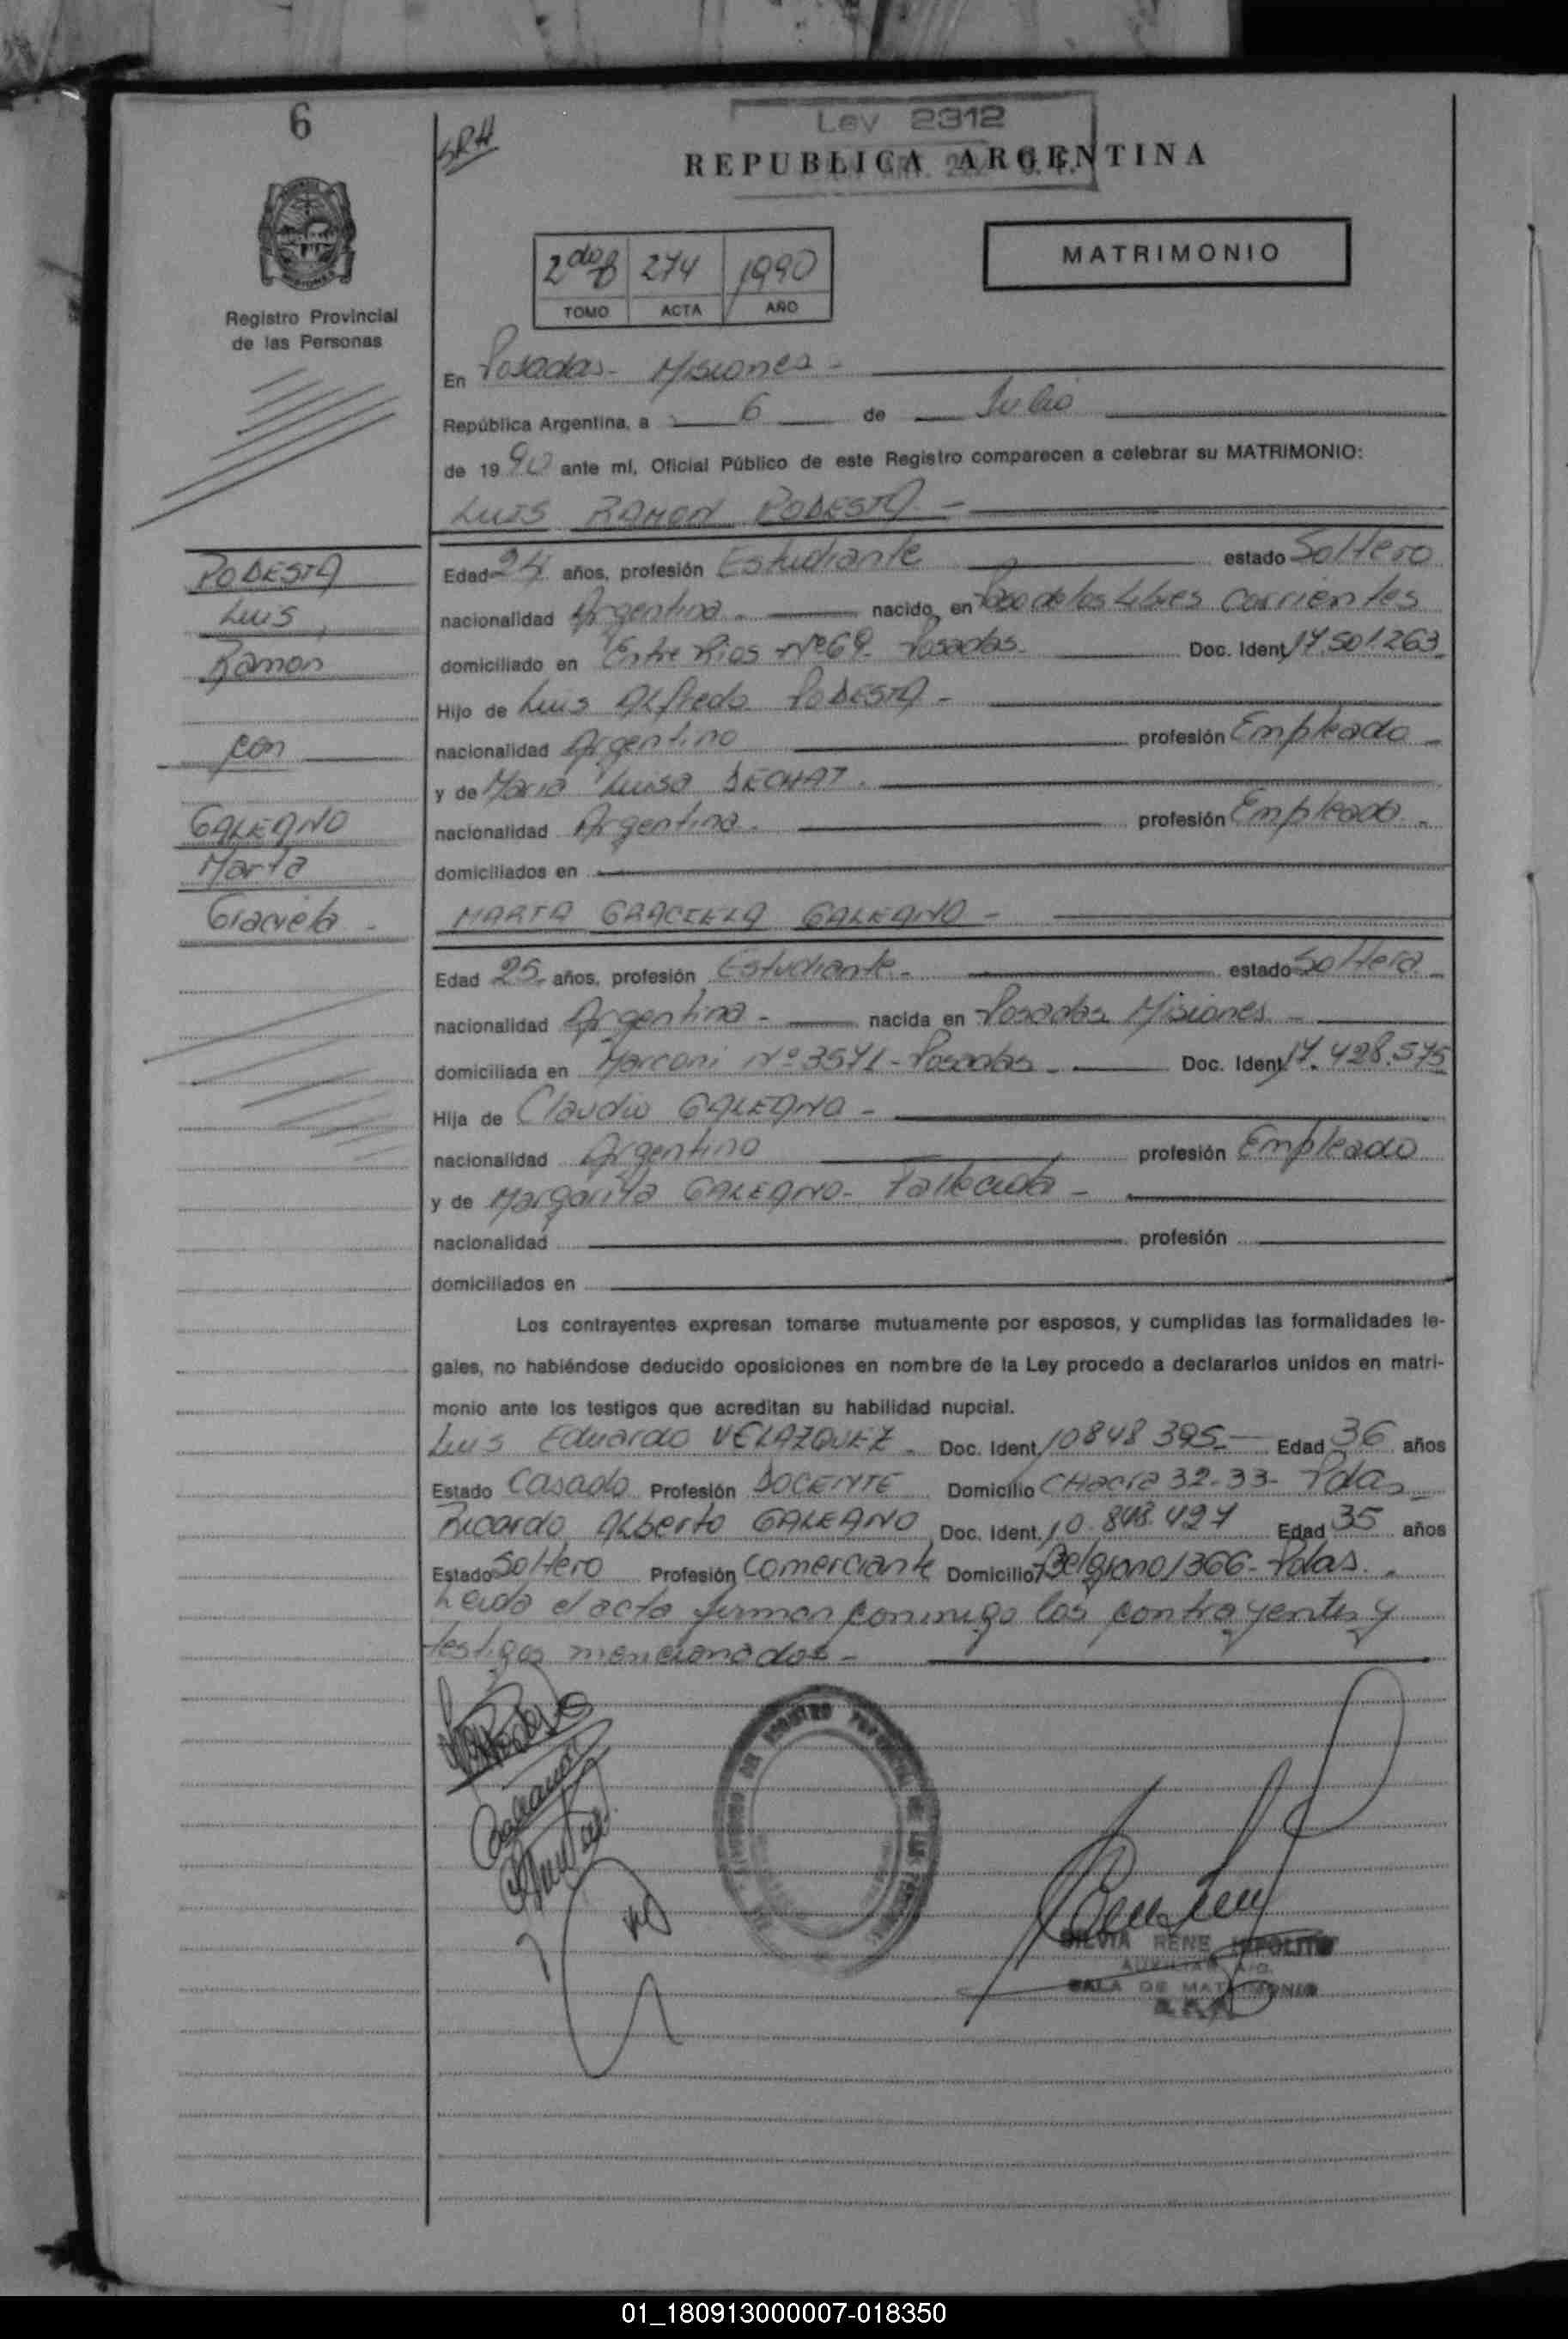 6
SRH
Ley 2312
REPUBLICA ARGENTINA
MATRIMONIO
2do 274 1990
TOMO ACTA AÑO
Registro Provincial
de las Personas
En Posadas - Misiones -
República Argentina, a 6 de Julio
de 1990 ante mí, Oficial Público de este Registro comparecen a celebrar su MATRIMONIO:
LUIS RAMON PODESTA -
PODESTA
Luis
Ramon
con
GALEANO
Marta
Graciela -
Edad 24 años, profesión Estudiante estado Soltero
nacionalidad Argentina - nacido en Paso de los Libres Corrientes
domiciliado en Entre Rios Nº 69 - Posadas - Doc. Ident. 17.501.263
Hijo de Luis Alfredo PODESTA -
nacionalidad Argentino profesión Empleado -
y de Maria Luisa DECHAT.
nacionalidad Argentina. profesión Empleada -
domiciliados en
MARTA GRACIELA GALEANO -
Edad 25 años, profesión Estudiante - estado Soltera
nacionalidad Argentina - nacida en Posadas Misiones -
domiciliada en Marconi Nº 3571 - Posadas - Doc. Ident. 17.428.575
Hija de Claudio GALEANO -
nacionalidad Argentino profesión Empleado
y de Margarita GALEANO - Fallecida -
nacionalidad profesión
domiciliados en
Los contrayentes expresan tomarse mutuamente por esposos, y cumplidas las formalidades le-
gales, no habiéndose deducido oposiciones en nombre de la Ley procedo a declararlos unidos en matri-
monio ante los testigos que acreditan su habilidad nupcial.
Luis Eduardo VELAZQUEZ - Doc. Ident. 10848395 - Edad 36 años
Estado Casado Profesión DOCENTE Domicilio CHacra 32-33- Pdas -
Ricardo Alberto GALEANO Doc. Ident. 10.848.427 Edad 35 años
Estado Soltero Profesión Comerciante Domicilio Belgrano 1366 - Pdas.
Leida el acta firman conmigo los contrayentes y
testigos mencionados -
SILVIA RENE HIPOLITO
AUXILIAR
SALA DE MATRIMONIO
01_180913000007-018350